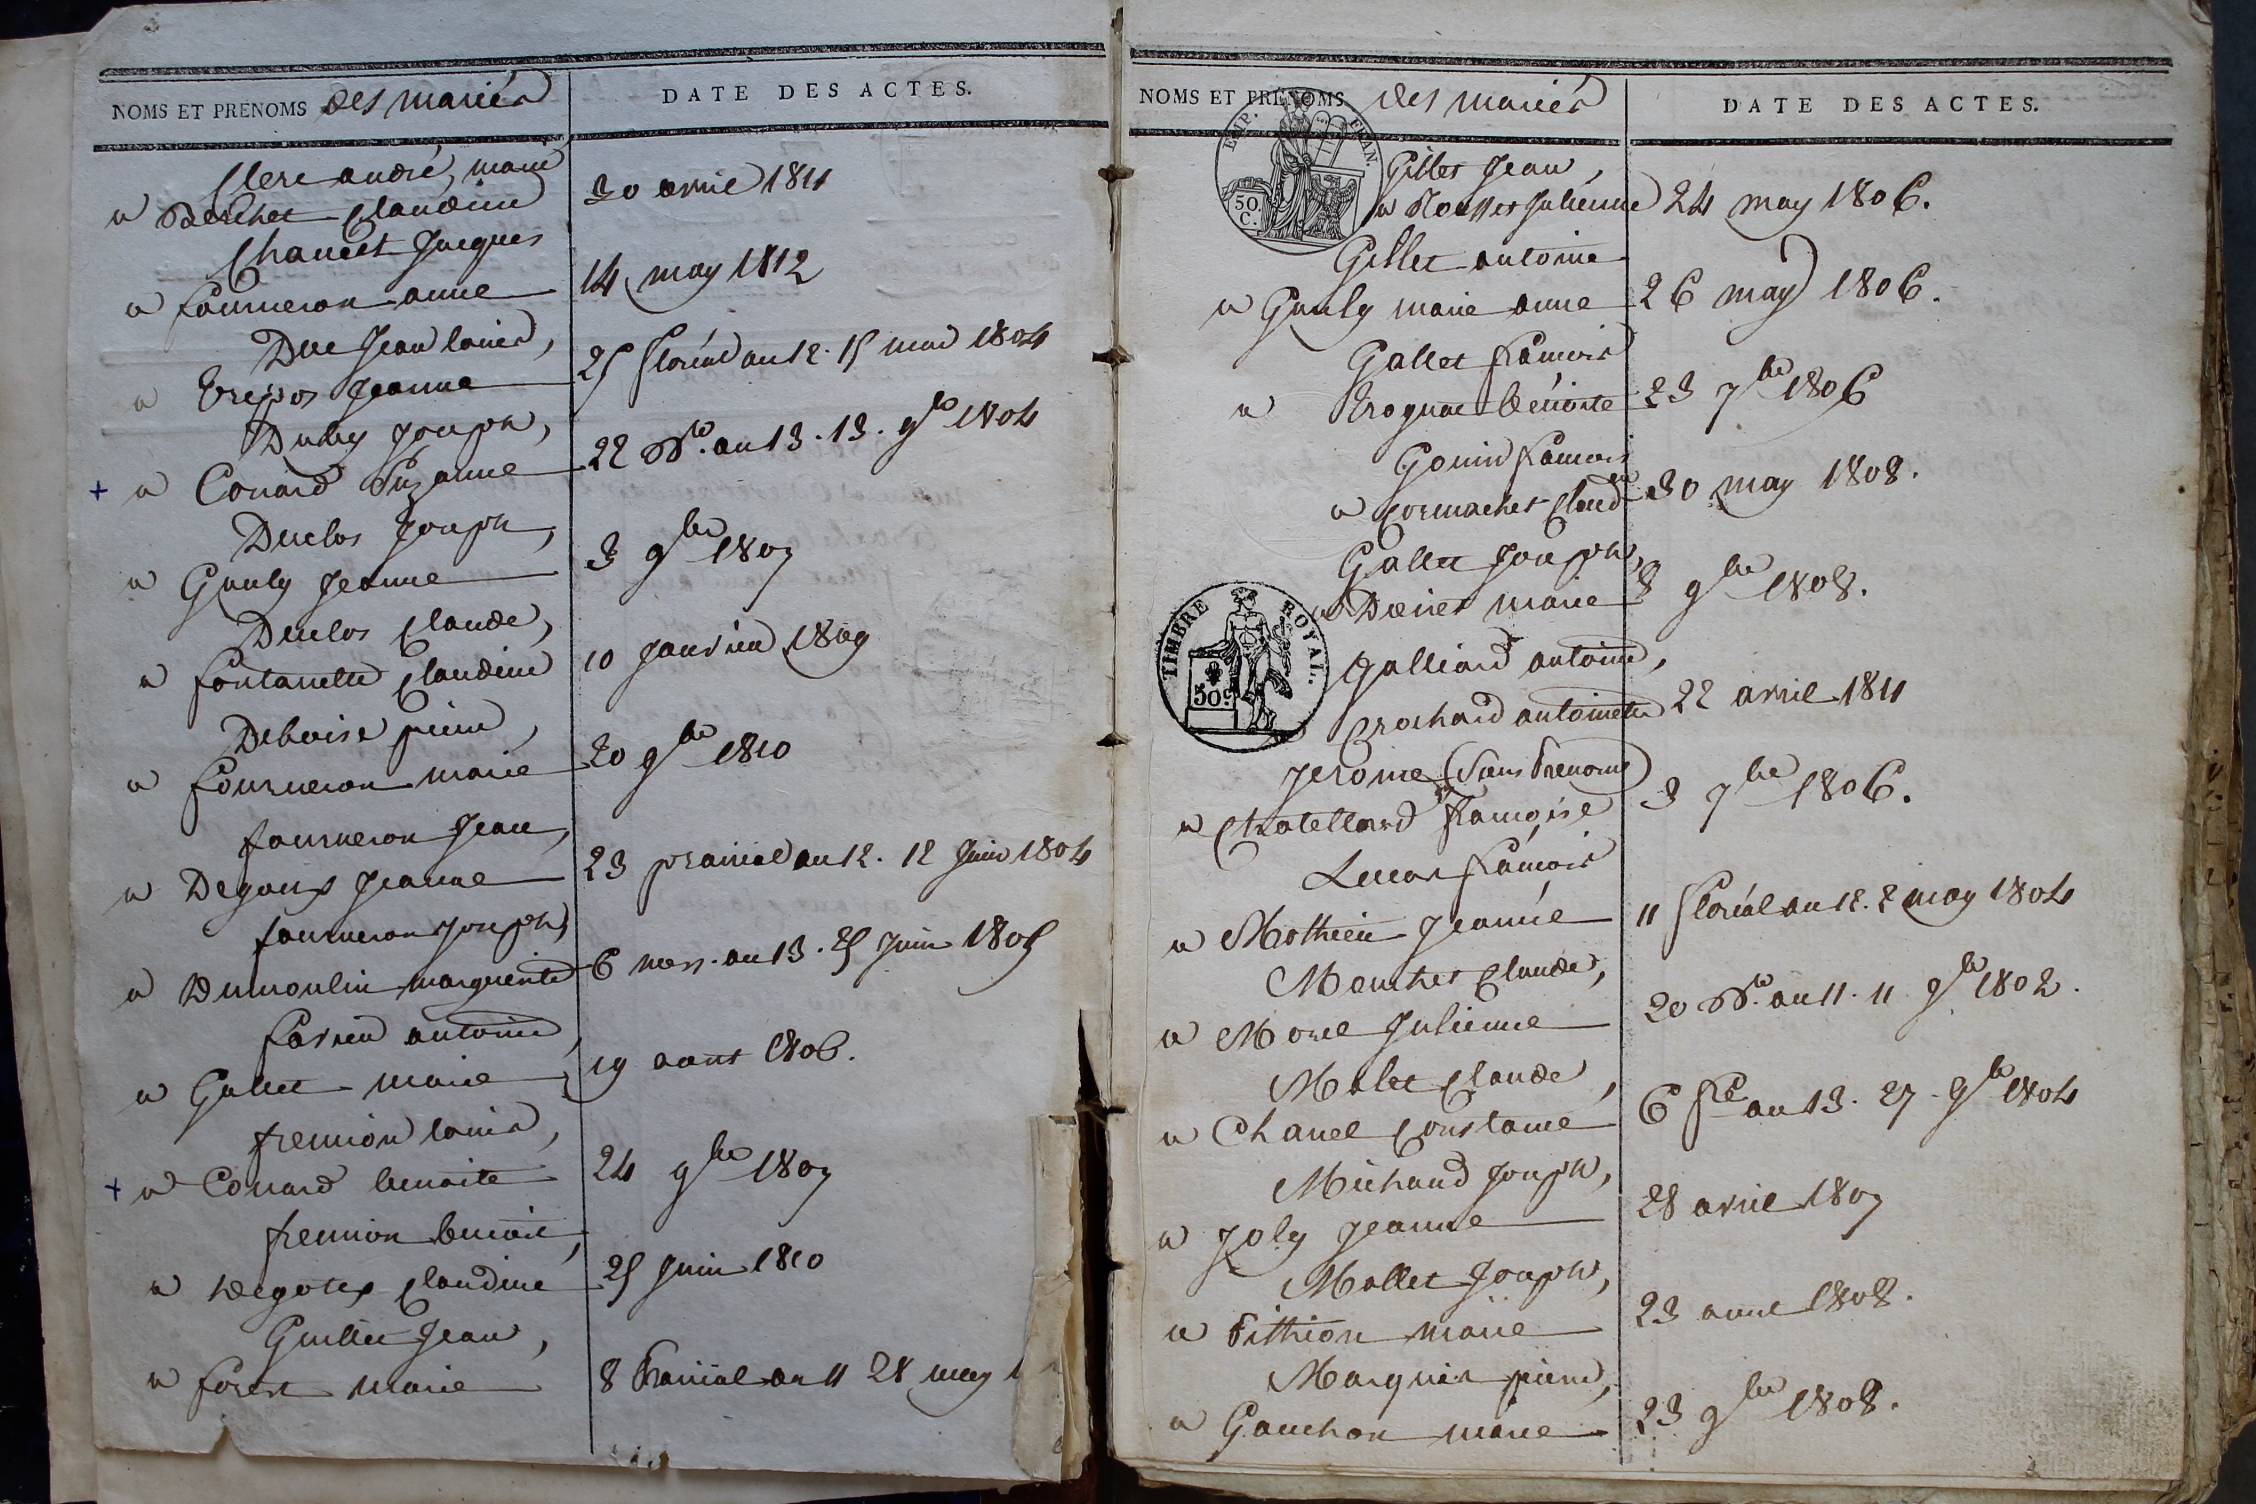 NOMS ET PRÉNOMS des mariés
DATE DES ACTES.
Clerc andré, marié
a Berchet Claudine
30 avril 1811
Chanest Jacques
a fourneron anne
14 may 1812
Duc Jean louis,
a Trepos Jeanne
25 floréal an 12. 15 mai 1804
Dubuy Joseph,
+ a Conard Suzanne
22 Bre. an 13. 13. 9bre 1804
Duclos Joseph,
a Gauly Jeanne
3 9bre 1807
Duclos Claude,
a fontanette Claudine
10 janvier 1809
Deboise pierre,
a fourneron marie
20 9bre 1810
fourneron Jean,
a Degoux Jeanne
23 prairial an 12. 12 Juin 1804
fourneron Joseph,
a Dumoulin marguerite
6 mess. an 13. 25 Juin 1805
favier antoine,
a Gallet marie
19 aout 1806.
fremion louis,
+ a Conard benoite
24 9bre 1807
fremion benoit,
a Degotex Claudine
25 Juin 1810
Guillet Jean,
a forest marie
8 Prairial an 11 28 may 1
NOMS ET PRÉNOMS des mariés
DATE DES ACTES.
EMP. FRAN.
50. C.
Gillet Jean,
a Rousset Julienne
24 may 1806.
Gillet antoine
a Gauly marie anne
26 may 1806.
Gallet françois
a Trognac Benoite
23 7bre 1806
Gonin françois
a Cormachet Claudine
30 may 1808.
Gallet Joseph,
a marie
8 9bre 1808.
TIMBRE ROYAL.
50c
Galliard antoine,
a Brochard antoinette
22 avril 1811
Jerome (sans Prenoms)
a Chatellard françoise
3 7bre 1806.
Lucas françois
a Mathieu Jeanne
11 floréal an 12. 2 may 1804
Meuchet Claude,
a Morel Julienne
20 Bre. an 11. 11 9bre 1802.
Malet Claude,
a Chanel Constance
6 fre an 13. 27. 9bre 1804
Michaud Joseph,
a Joly Jeanne
28 avril 1807
Mallet Joseph,
a Pithion marie
23 avril 1808.
Marquis pierre,
a Gauchon marie
23 9bre 1808.